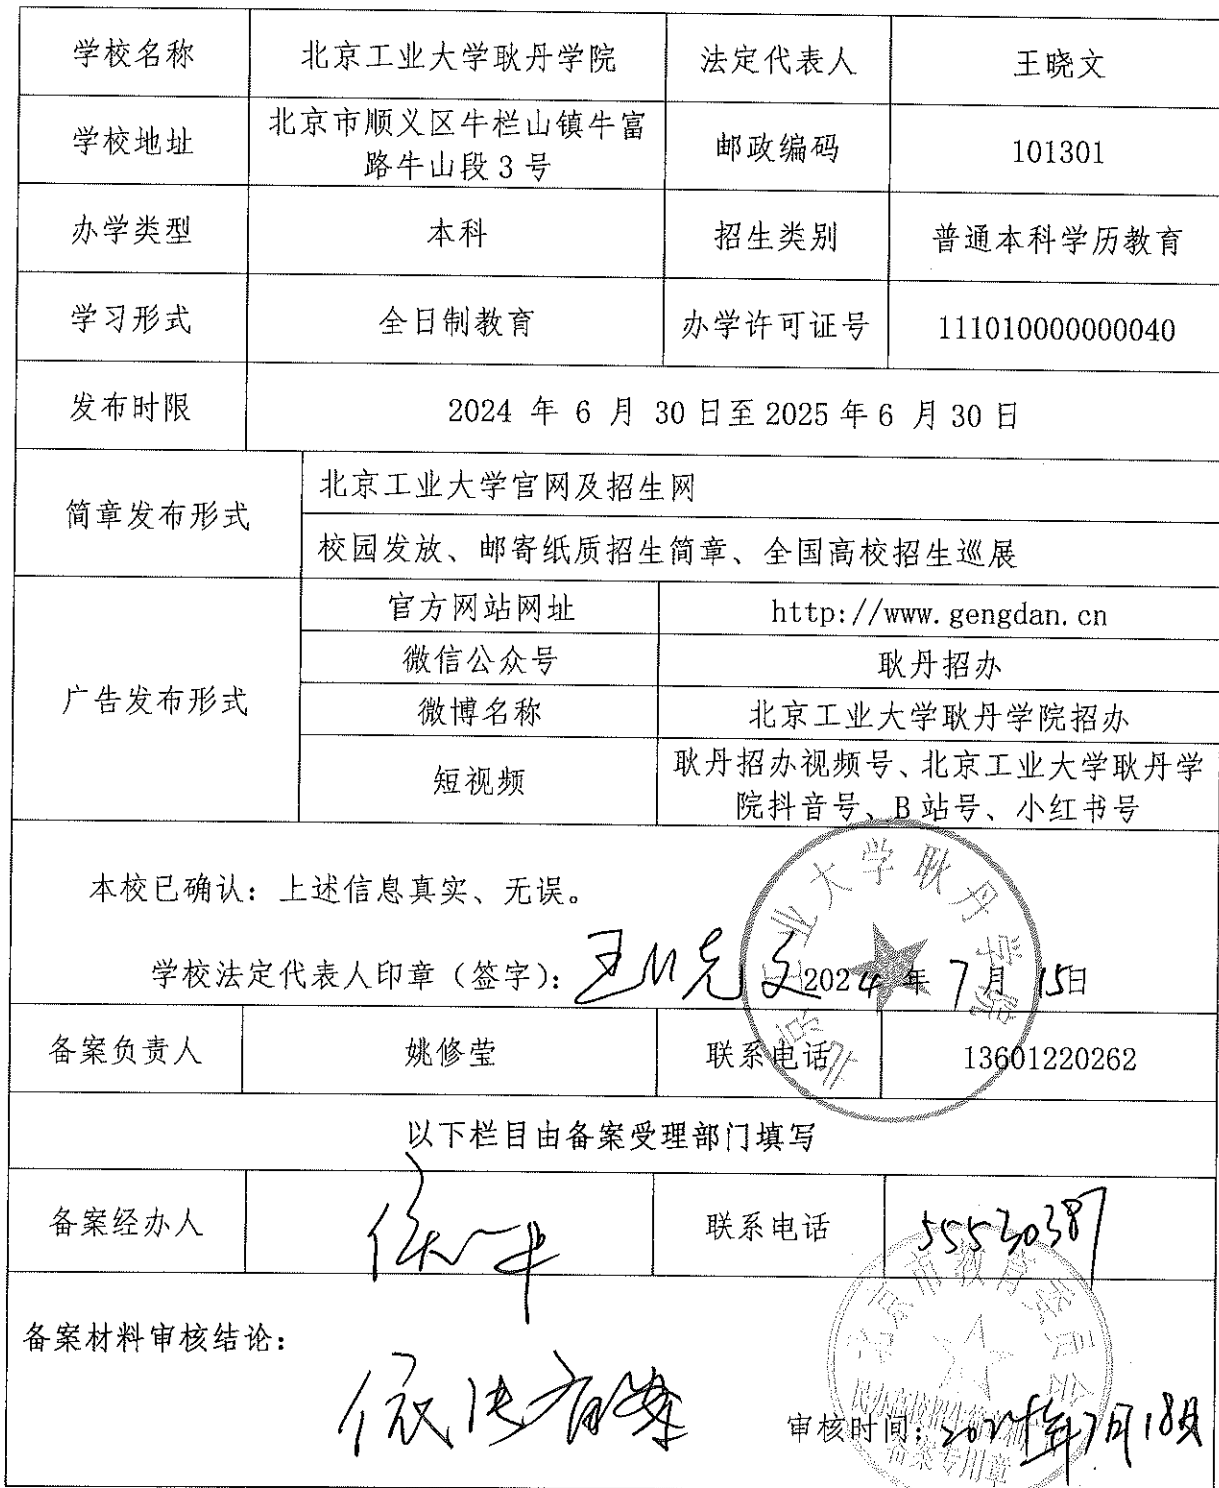 学校名称 北京工业大学耿丹学院 法定代表人 王晓文
学校地址 北京市顺义区牛栏山镇牛富
路牛山段3号 邮政编码 101301
办学类型 本科 招生类别 普通本科学历教育
学习形式 全日制教育 办学许可证号 111010000000040
发布时限 2024 年 6 月 30 日至 2025 年 6 月 30 日
简章发布形式 北京工业大学官网及招生网
校园发放、邮寄纸质招生简章、全国高校招生巡展
广告发布形式 官方网站网址 http://www.gengdan.cn
微信公众号 耿丹招办
微博名称 北京工业大学耿丹学院招办
短视频 耿丹招办视频号、北京工业大学耿丹学
院抖音号、B站号、小红书号
本校已确认：上述信息真实、无误。
学校法定代表人印章（签字）：王晓文 2024 年 7 月 15 日
北京工业大学耿丹学院
备案负责人 姚修莹 联系电话 13601220262
以下栏目由备案受理部门填写
备案经办人 联系电话 55530387
备案材料审核结论：
北京市教育委员会
备案专用章
审核时间：2024年7月18日